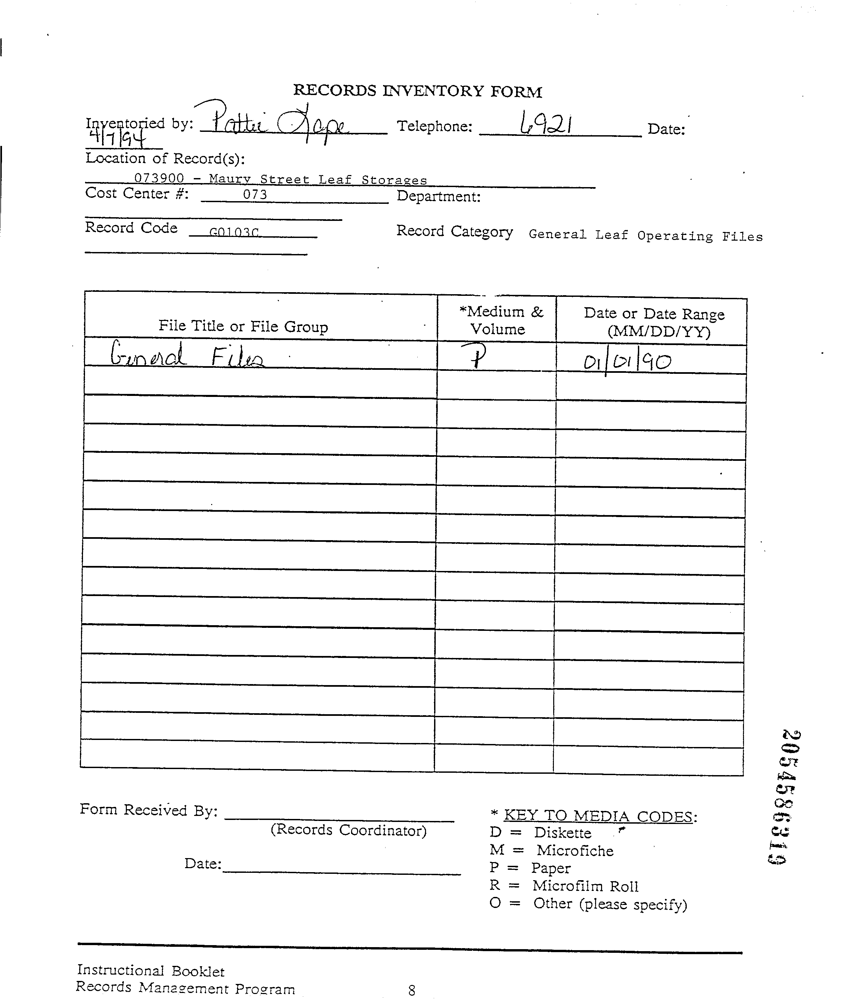 RECORDS INVENTORY FORM
Inventoried by: Pattie Telephone: 6921 Date:
4/7/94
Location of Record(s):
073900 - Maury Street Leaf Storages
Cost Center #: 073 Department:
Record Code G0103C Record Category General Leaf Operating Files
File Title or File Group *Medium & Volume Date or Date Range (MM/DD/YY)
General Files P 01/01/90
Form Received By:
(Records Coordinator)
Date:
* KEY TO MEDIA CODES:
D = Diskette
M = Microfiche
P = Paper
R = Microfilm Roll
O = Other (please specify)
2054586319
Instructional Booklet
Records Management Program 8